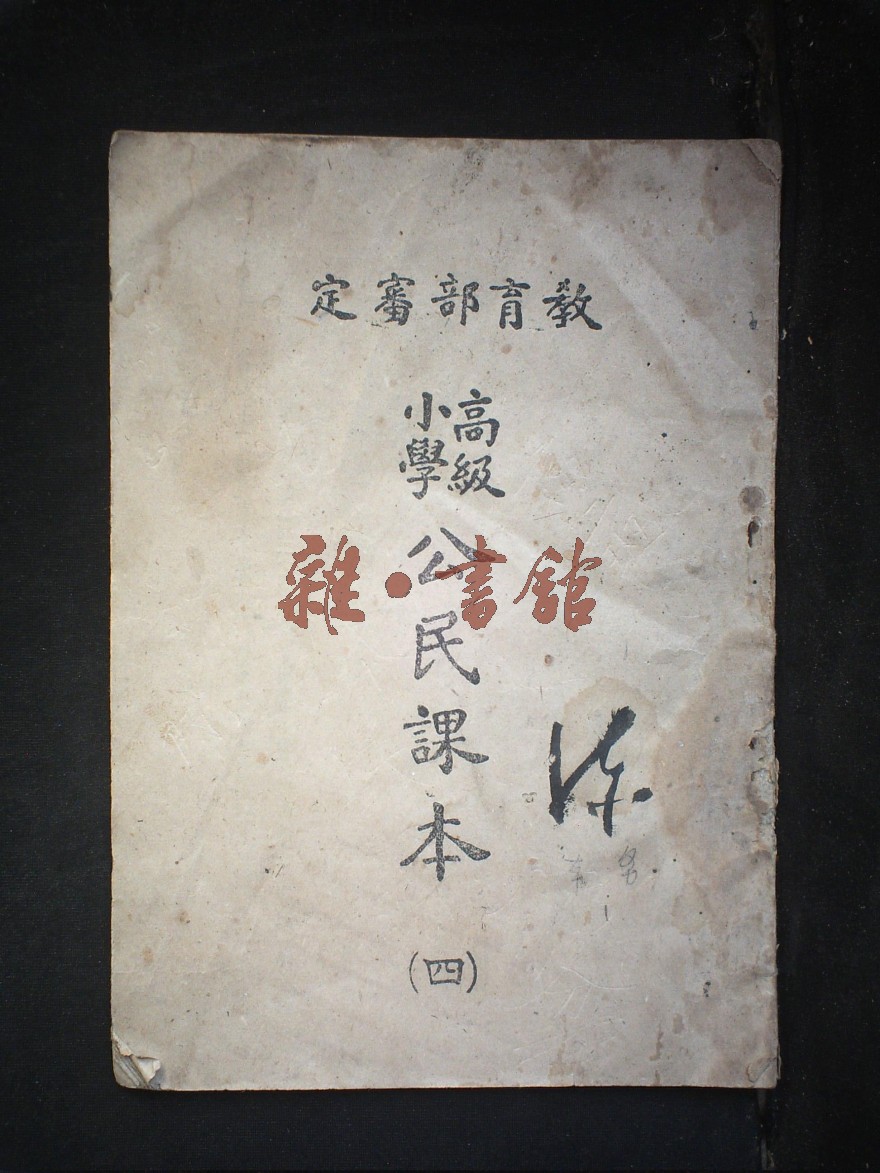 教育部審定
高級
小學
公民課本
(四)
雜·書舘